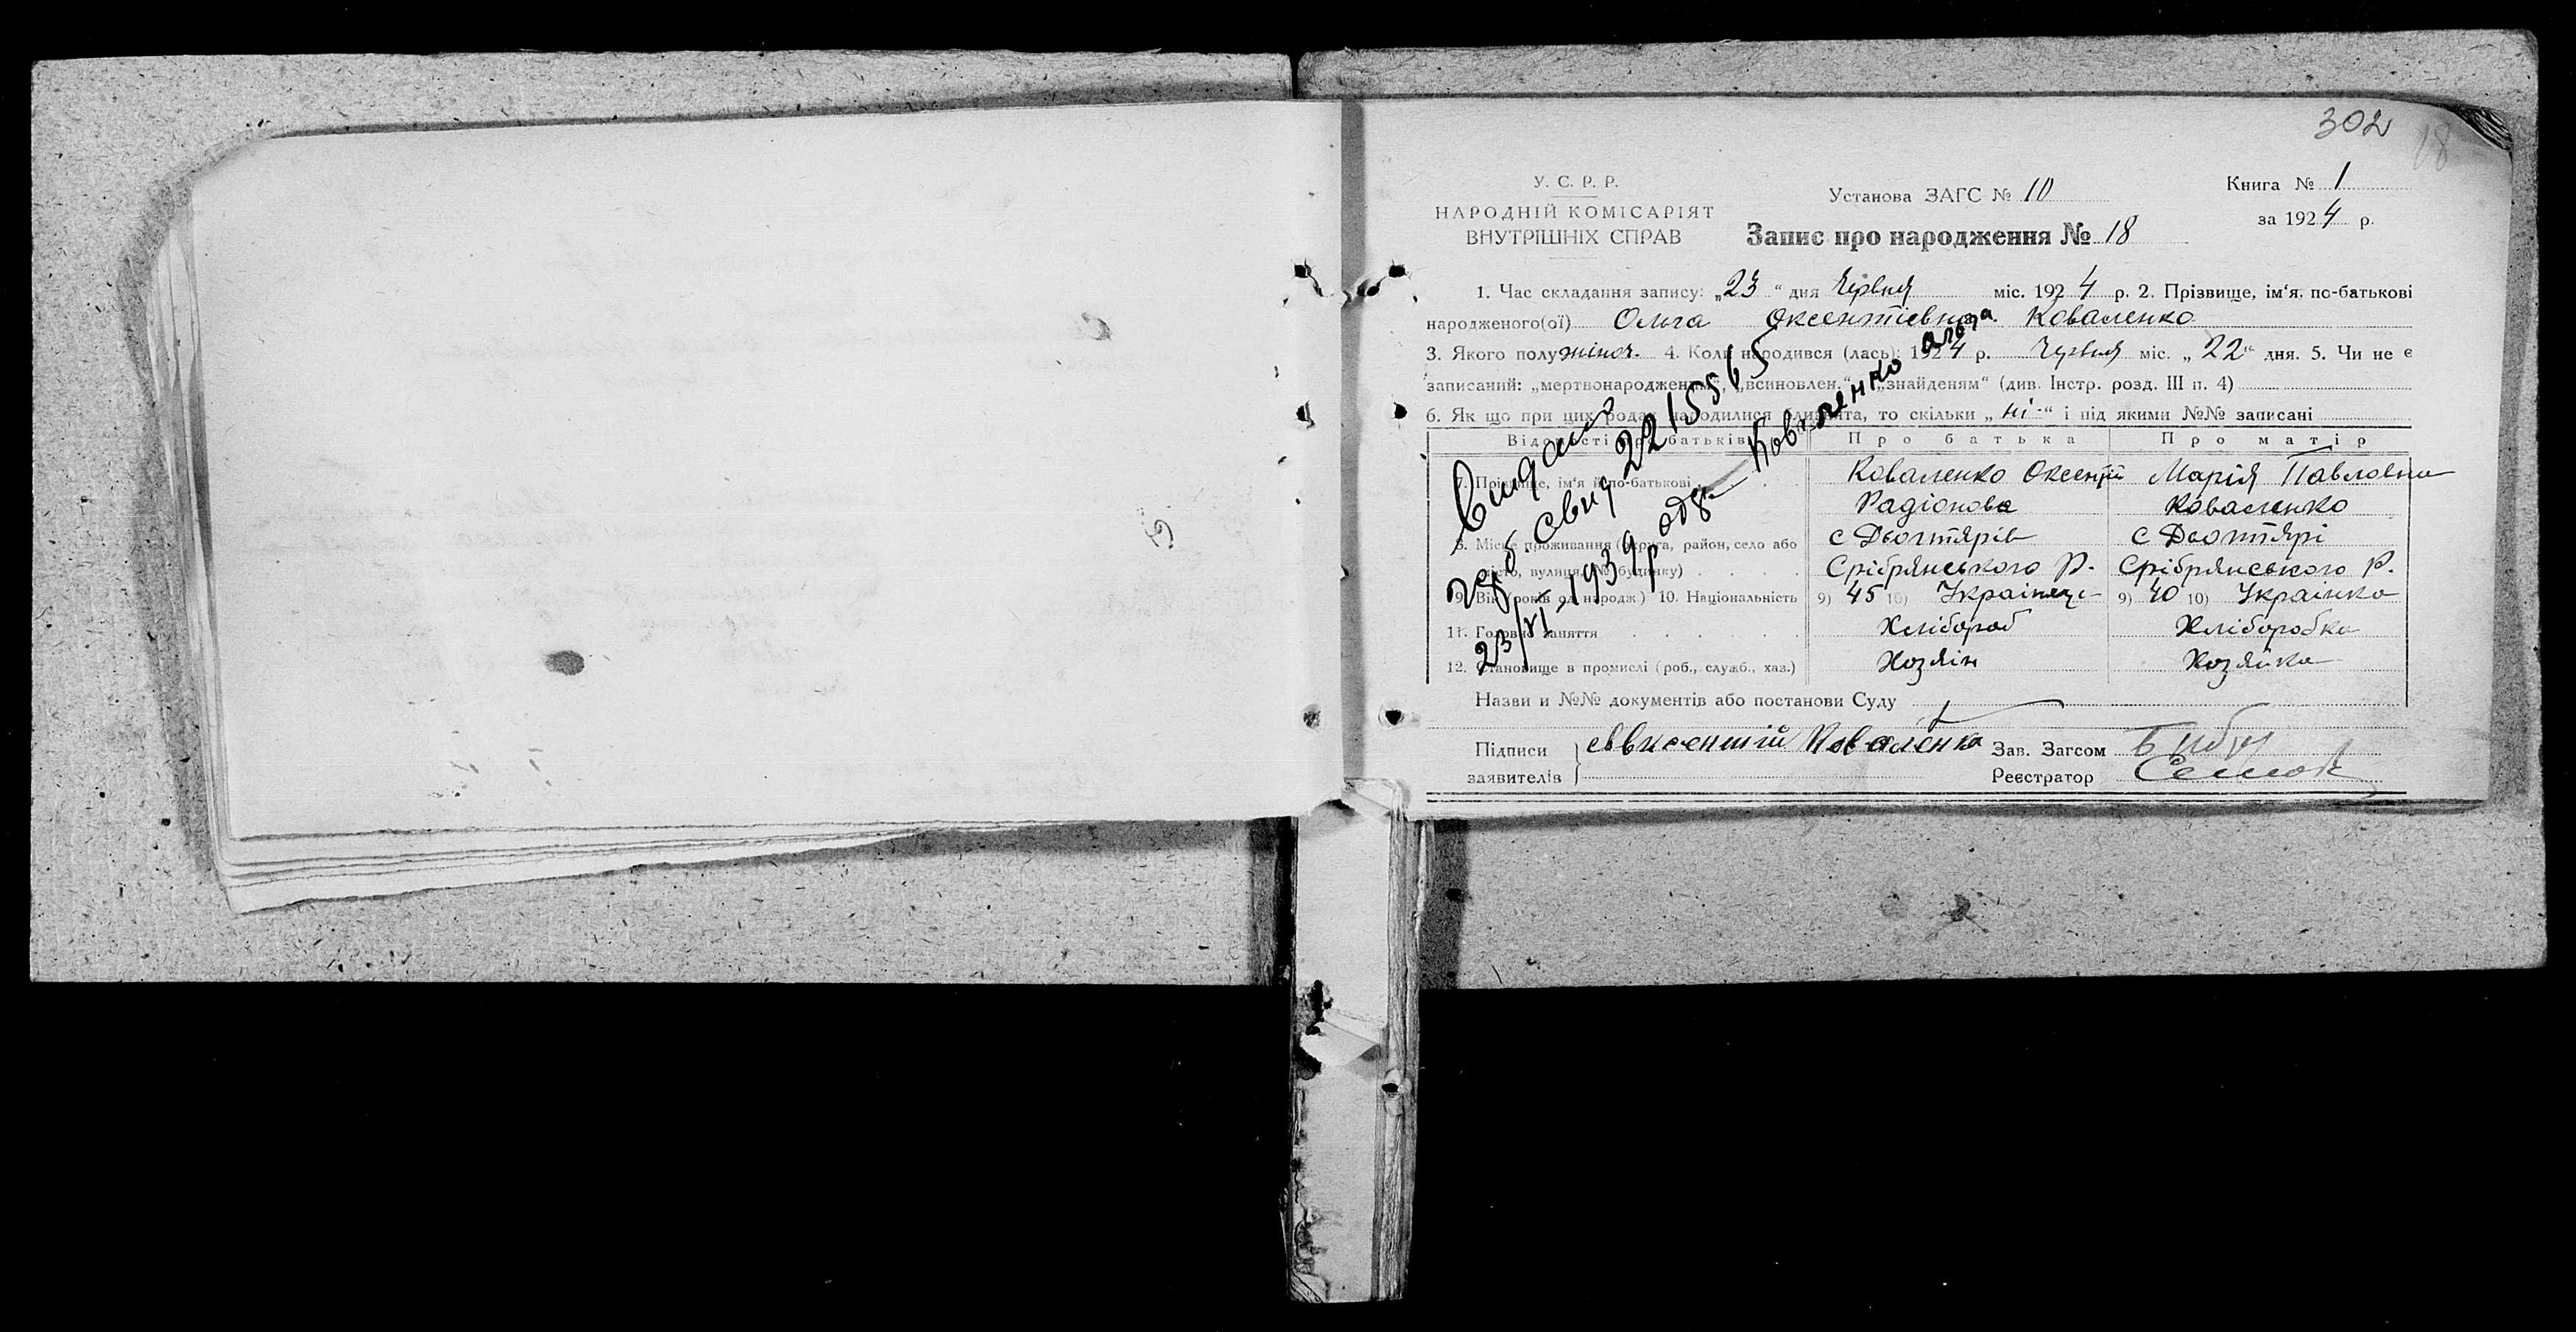 302
18
У. С. Р. Р.
НАРОДНІЙ КОМІСАРІЯТ
ВНУТРІШНІХ СПРАВ
Установа ЗАГС № 10
Запис про народження № 18
Книга № 1
за 1924 р.
1. Час складання запису: „23“ дня Червня міс. 1924 р. 2. Прізвище, ім‘я, по-батькові
народженого(ої) Ольга Оксентієвна Коваленко
3. Якого полу жіноч. 4. Коли народився (лась): 1924 р. Червня міс. „22“ дня. 5. Чи не є
записаний: „мертвонароджений“, „всиновлен.“, „знайденям“ (див. Інстр. розд. III п. 4)
6. Як що при цих родах народилися близнята, то скільки „ні“ і під якими №№ записані
Відомості про батьків Про батька Про матір
7. Прізвище, ім‘я й по-батькові Коваленко Оксентій Марія Павловна
Радіонова Коваленко
8. Місце проживання (округа, район, село або с Дьогтярів с Дьогтярі
місто, вулиця, № будинку) Срібрянського Р. Срібрянського Р.
9. Вік (років од народж) 10. Національність 9) 45 10) Українец 9) 40 10) Українка
11. Головне заняття Хлібороб Хліборобка
12. Становище в промислі (роб., служб., хаз.) Хозяін Хозяйка
Видано
свид 2215565
23/VI 1939 р Коваленко Ольга
Назви и №№ документів або постанови Суду
Підписи Коваленко Зав. Загсом
заявителів Реєстратор